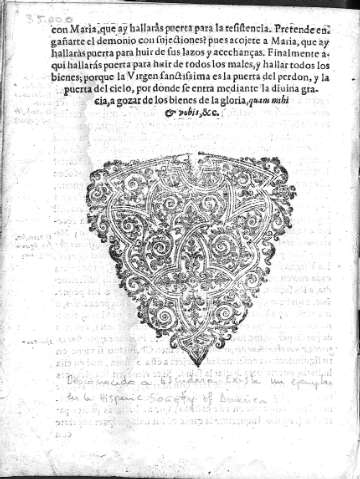 35.000
con Maria, que aỹ hallaràs puerta para la resistencia. Pretende en-
gañarte el demonio con sujectiones? pues acojete a Maria, que aỹ
hallaràs puerta para huir de sus lazos y acechanças. Finalmente a-
qui hallaràs puerta para huir de todos los males, y hallar todos los
bienes; porque la Virgen sanctissima es la puerta del perdon, y la
puerta del cielo, por donde se entra mediante la diuina gra-
cia, a gozar de los bienes de la gloria, quam mihi
& vobis, &c.
Desconocido a Existe un ejemplar
en la Hispanic Society of America